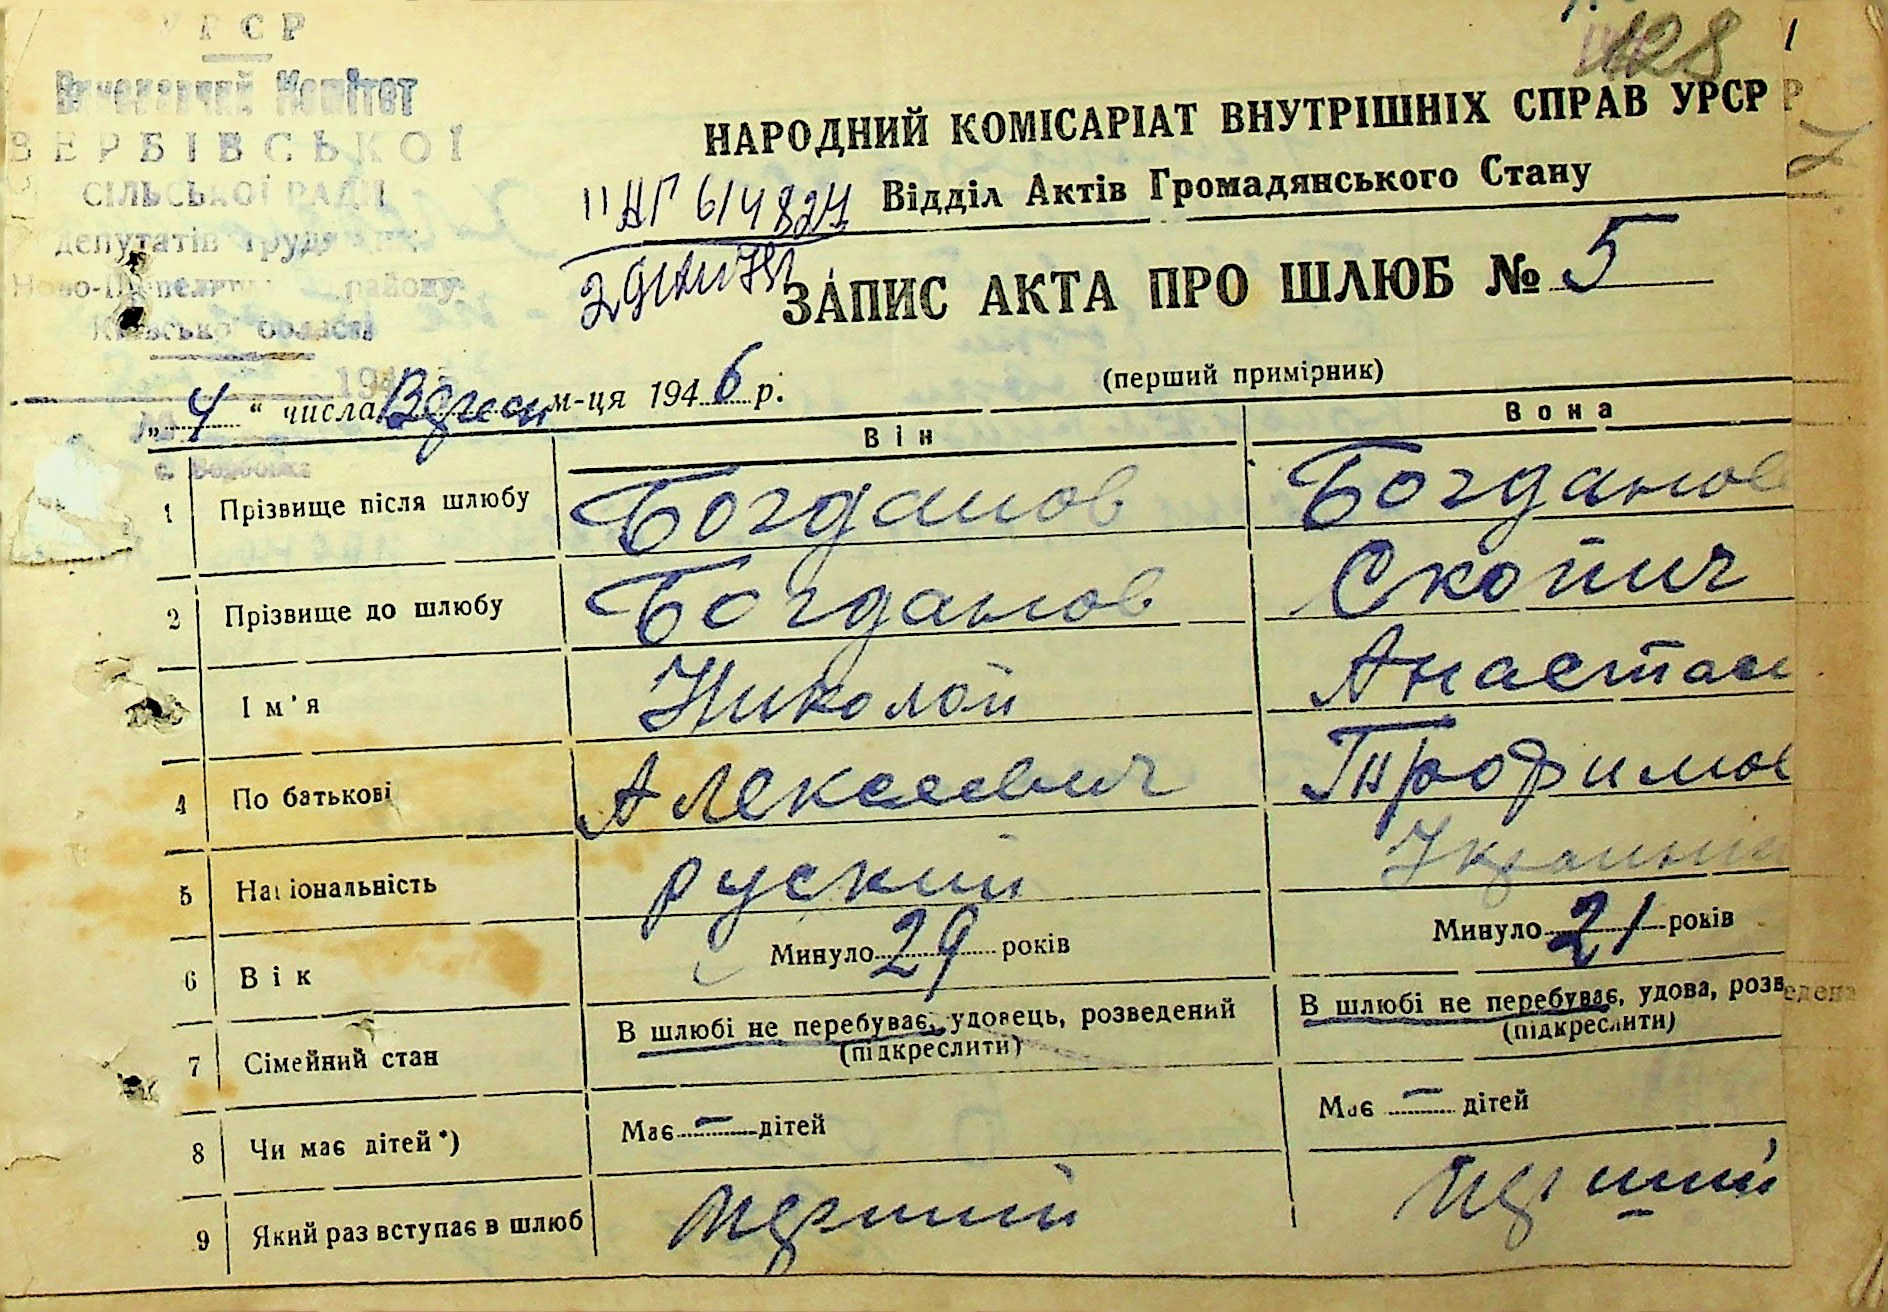 УРСР
Виконавчий Комітет
ВЕРБІВСЬКОЇ
СІЛЬСЬКОЇ РАДИ
депутатів
району
області
с. Вербовка
128
НАРОДНИЙ КОМІСАРІАТ ВНУТРІШНІХ СПРАВ УРСР
Відділ Актів Громадянського Стану
ЗАПИС АКТА ПРО ШЛЮБ № 5
(перший примірник)
„ 4 “ числа м-ця 194 6 р.
Він Вона
1 Прізвище після шлюбу Богданов Богданов
2 Прізвище до шлюбу Богданов Скопич
Ім'я Николай Анастаси
4 По батькові Алексеевич Трофимов
5 Національність руский Украин
6 Вік Минуло 29 років Минуло 21 років
7 Сімейний стан В шлюбі не перебуває, удовець, розведений В шлюбі не перебуває, удова, розведена
(підкреслити) (підкреслити)
8 Чи має дітей*) Має — дітей Має — дітей
9 Який раз вступає в шлюб перший перший